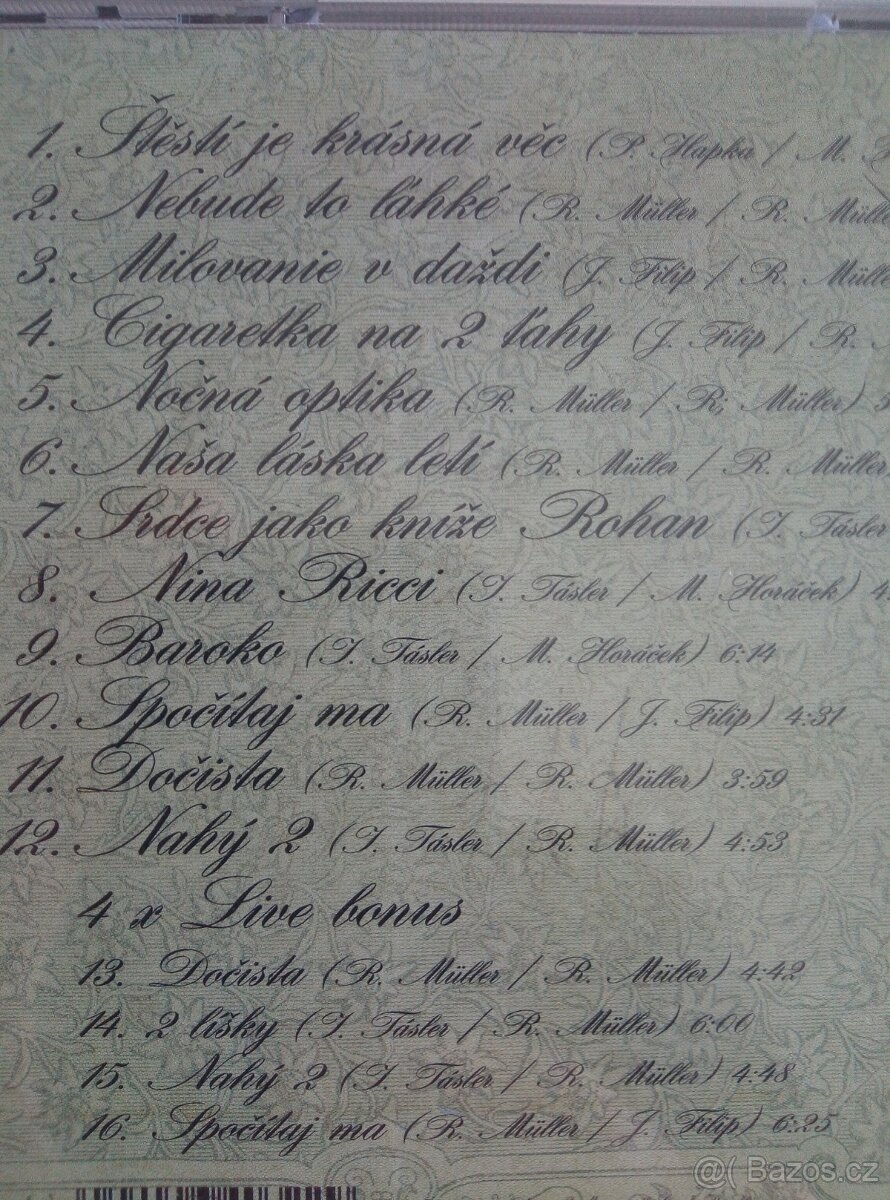 1. Štěstí je krásná věc (P. Hapka / M.
2. Nebude to ľahké (R. Müller / R. Müll
3. Milovanie v daždi (J. Filip / R. Mülle
4. Cigaretka na 2 ťahy (J. Filip / R.
5. Nočná optika (R. Müller / R; Müller)
6. Naša láska letí (R. Müller / R. Müller
7. Srdce jako kníže Rohan (I. Tásler
8. Nina Ricci (I. Tásler / M. Horáček) 4
9. Baroko (I. Tásler / M. Horáček) 6:14
10. Spočítaj ma (R. Müller / J. Filip) 4:31
11. Dočista (R. Müller / R. Müller) 3:59
12. Nahý 2 (I. Tásler / R. Müller) 4:53
4 x Live bonus
13. Dočista (R. Müller / R. Müller) 4:42
14. 2 lížky (I. Tásler / R. Müller) 6:00
15. Nahý 2 (I. Tásler / R. Müller) 4:48
16. Spočítaj ma (R. Müller / J. Filip) 6:25
@( Bazos.cz